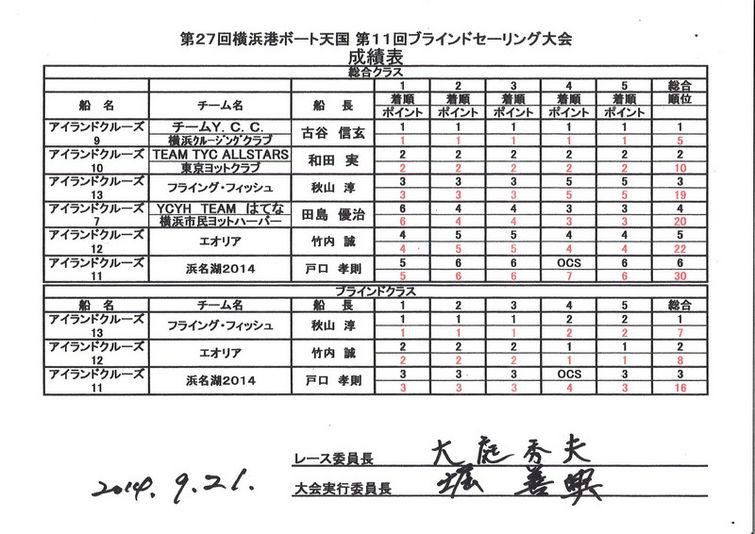 第27回横浜港ボート天国 第11回ブラインドセーリング大会
成績表
総合クラス
1 2 3 4 5 総合
船 名 チーム名 船 長 着順 着順 着順 着順 着順 順位
ポイント ポイント ポイント ポイント ポイント
アイランドクルーズ 9 チームY. C. C. 横浜クルージングクラブ 古谷 信玄 1 1 1 1 1 1
1 1 1 1 1 5
アイランドクルーズ 10 TEAM TYC ALLSTARS 東京ヨットクラブ 和田 実 2 2 2 2 2 2
2 2 2 2 2 10
アイランドクルーズ 13 フライング・フィッシュ 秋山 淳 3 3 3 5 5 3
3 3 3 5 5 19
アイランドクルーズ 7 YCYH TEAM はてな 横浜市民ヨットハーバー 田島 優治 6 4 4 3 3 4
6 4 4 3 3 20
アイランドクルーズ 12 エオリア 竹内 誠 4 5 5 4 4 5
4 5 5 4 4 22
アイランドクルーズ 11 浜名湖2014 戸口 孝則 5 6 6 OCS 6 6
5 6 6 7 6 30
ブラインドクラス
船 名 チーム名 船 長 1 2 3 4 5 総合
アイランドクルーズ 13 フライング・フィッシュ 秋山 淳 1 1 1 2 2 1
1 1 1 2 2 7
アイランドクルーズ 12 エオリア 竹内 誠 2 2 2 1 1 2
2 2 2 1 1 8
アイランドクルーズ 11 浜名湖2014 戸口 孝則 3 3 3 OCS 3 3
3 3 3 4 3 16
レース委員長 大庭秀夫
2014. 9.21. 大会実行委員長 堀 善興